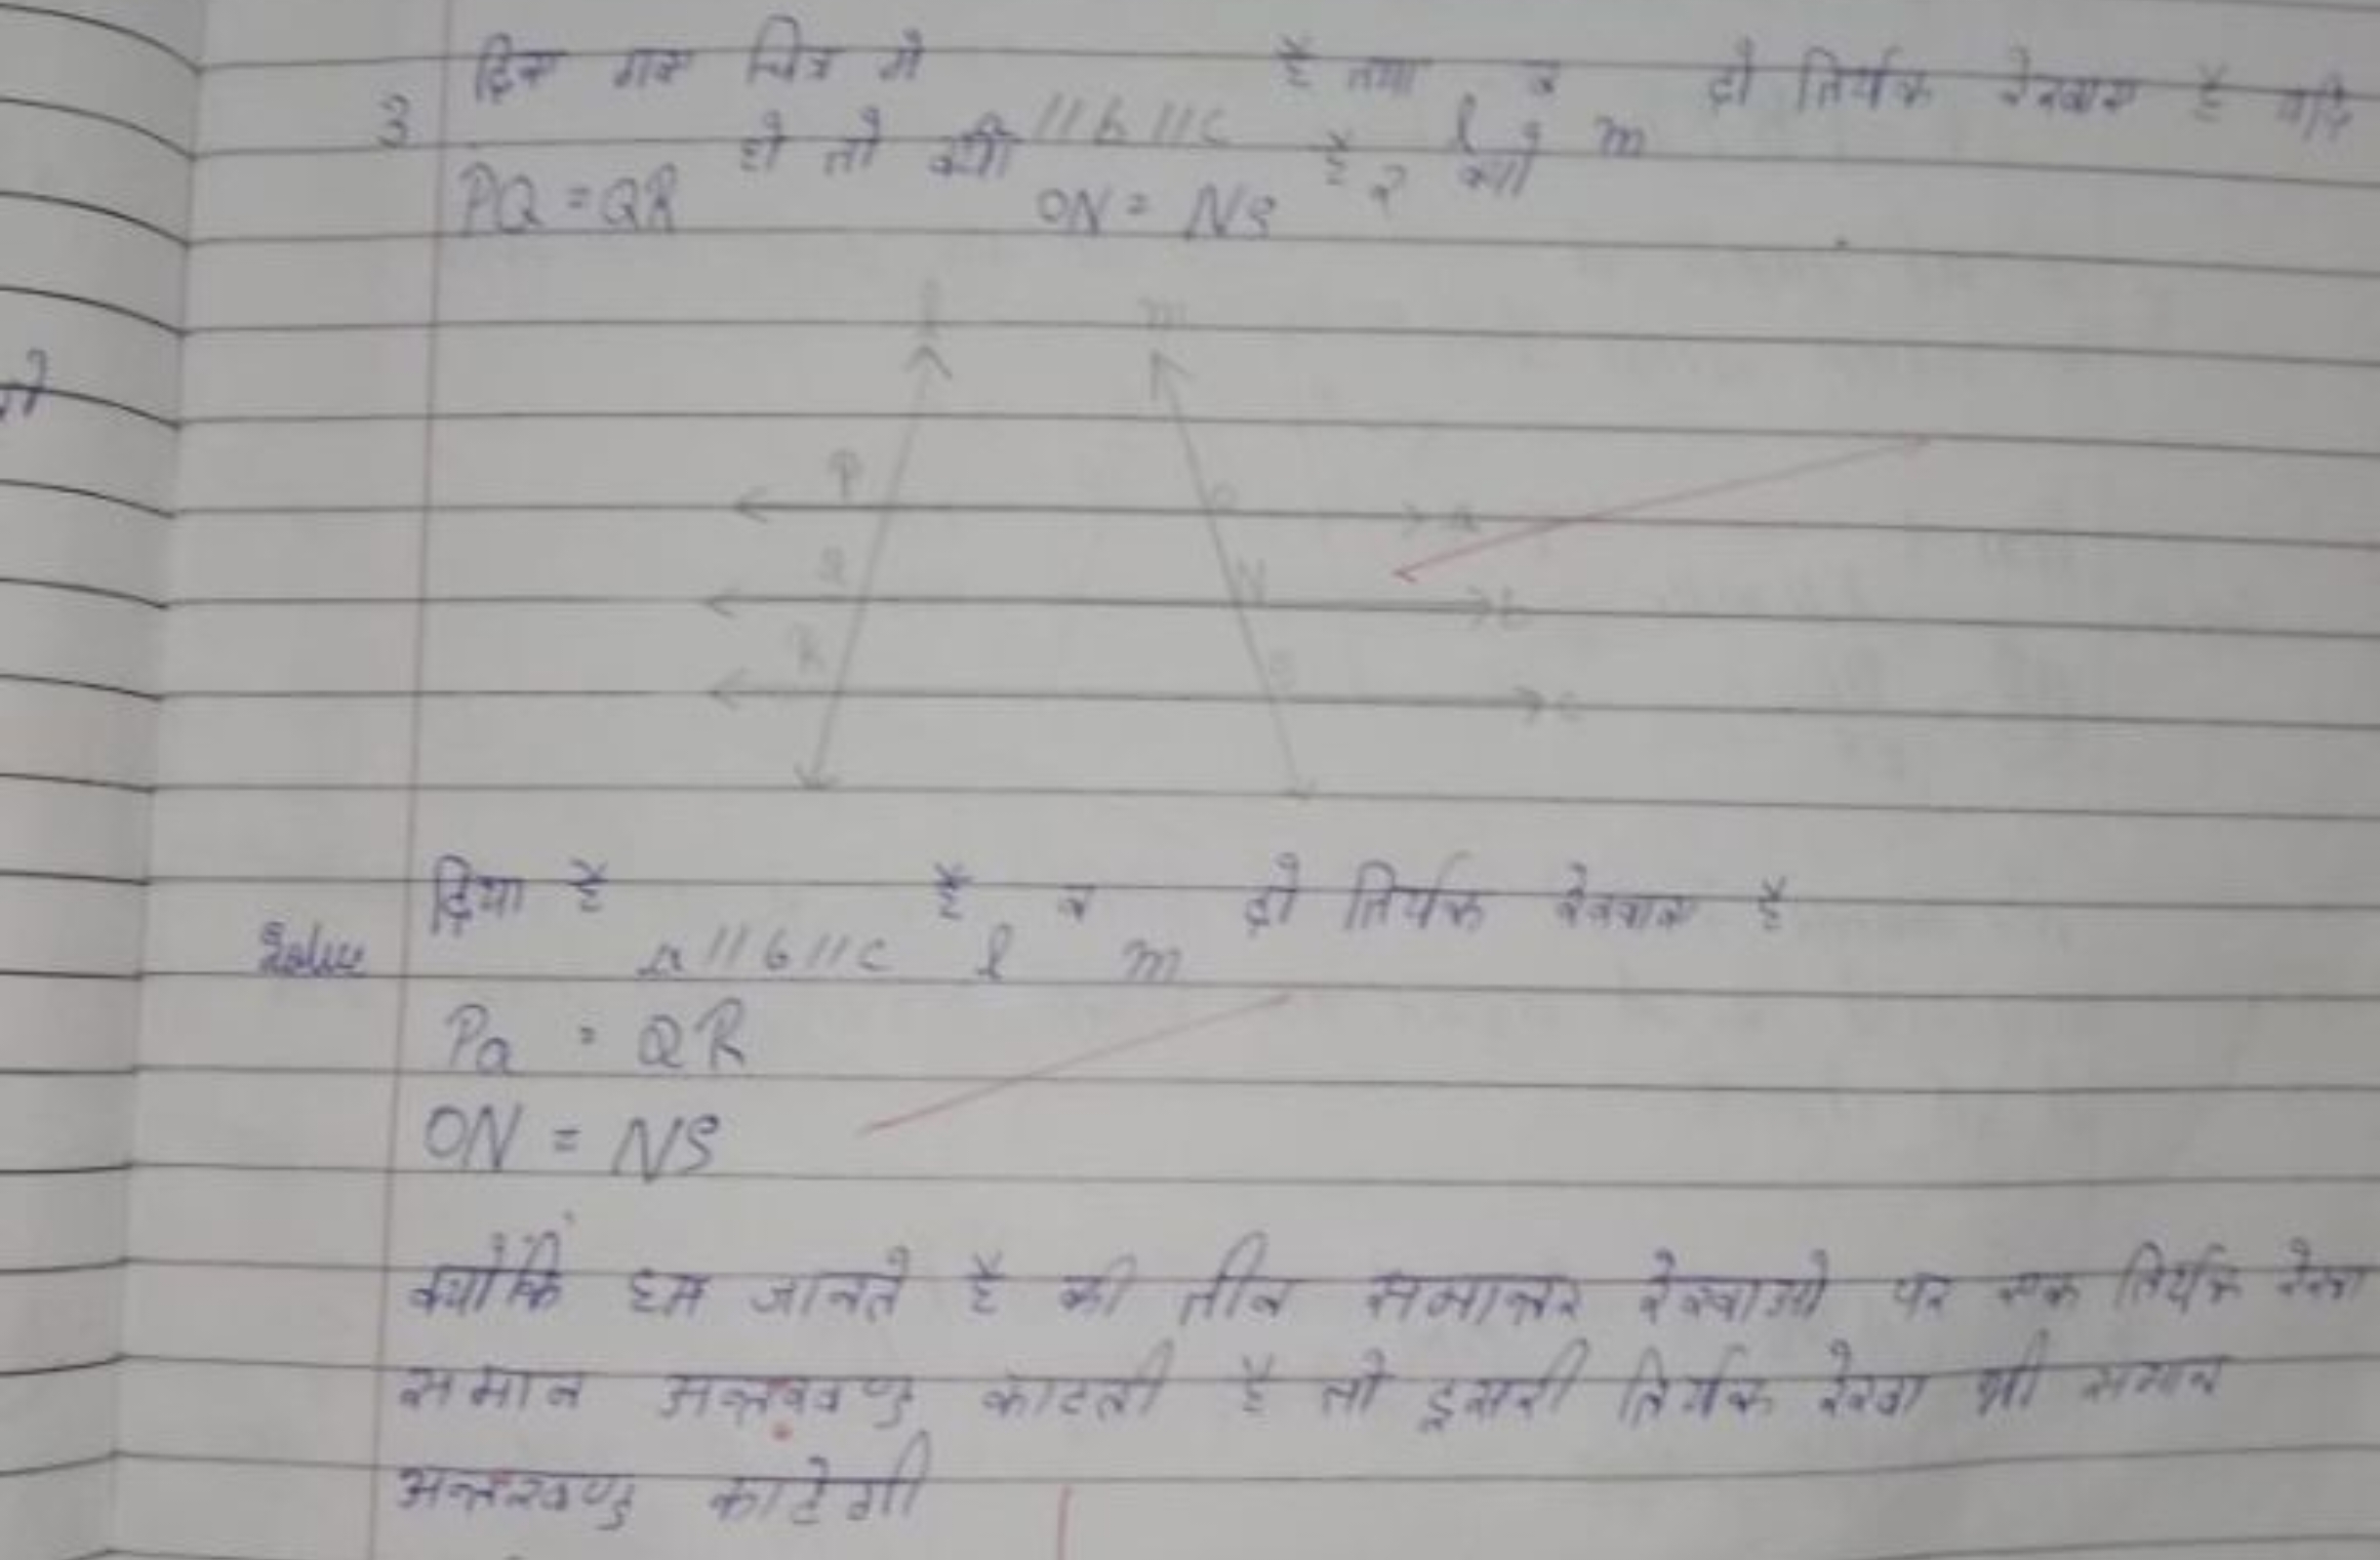 3 दिए गए चित्र मे //b//c है तथा l व m दो तिर्यक रेखाए है यदि
PQ = QR हो तो क्यी ON = NS है ? क्यो
l m
P O a
Q N b
R S c
दिया है a//b//c है l व m दो तिर्यक रेखाए है
Solve
PQ = QR
ON = NS
क्योंकि हम जानते है की तीन समान्तर रेखाओ पर एक तिर्यक रेखा
समान अन्तखण्ड काटती है तो दुसरी तिर्यक रेखा भी समान
अन्तखण्ड काटेगी